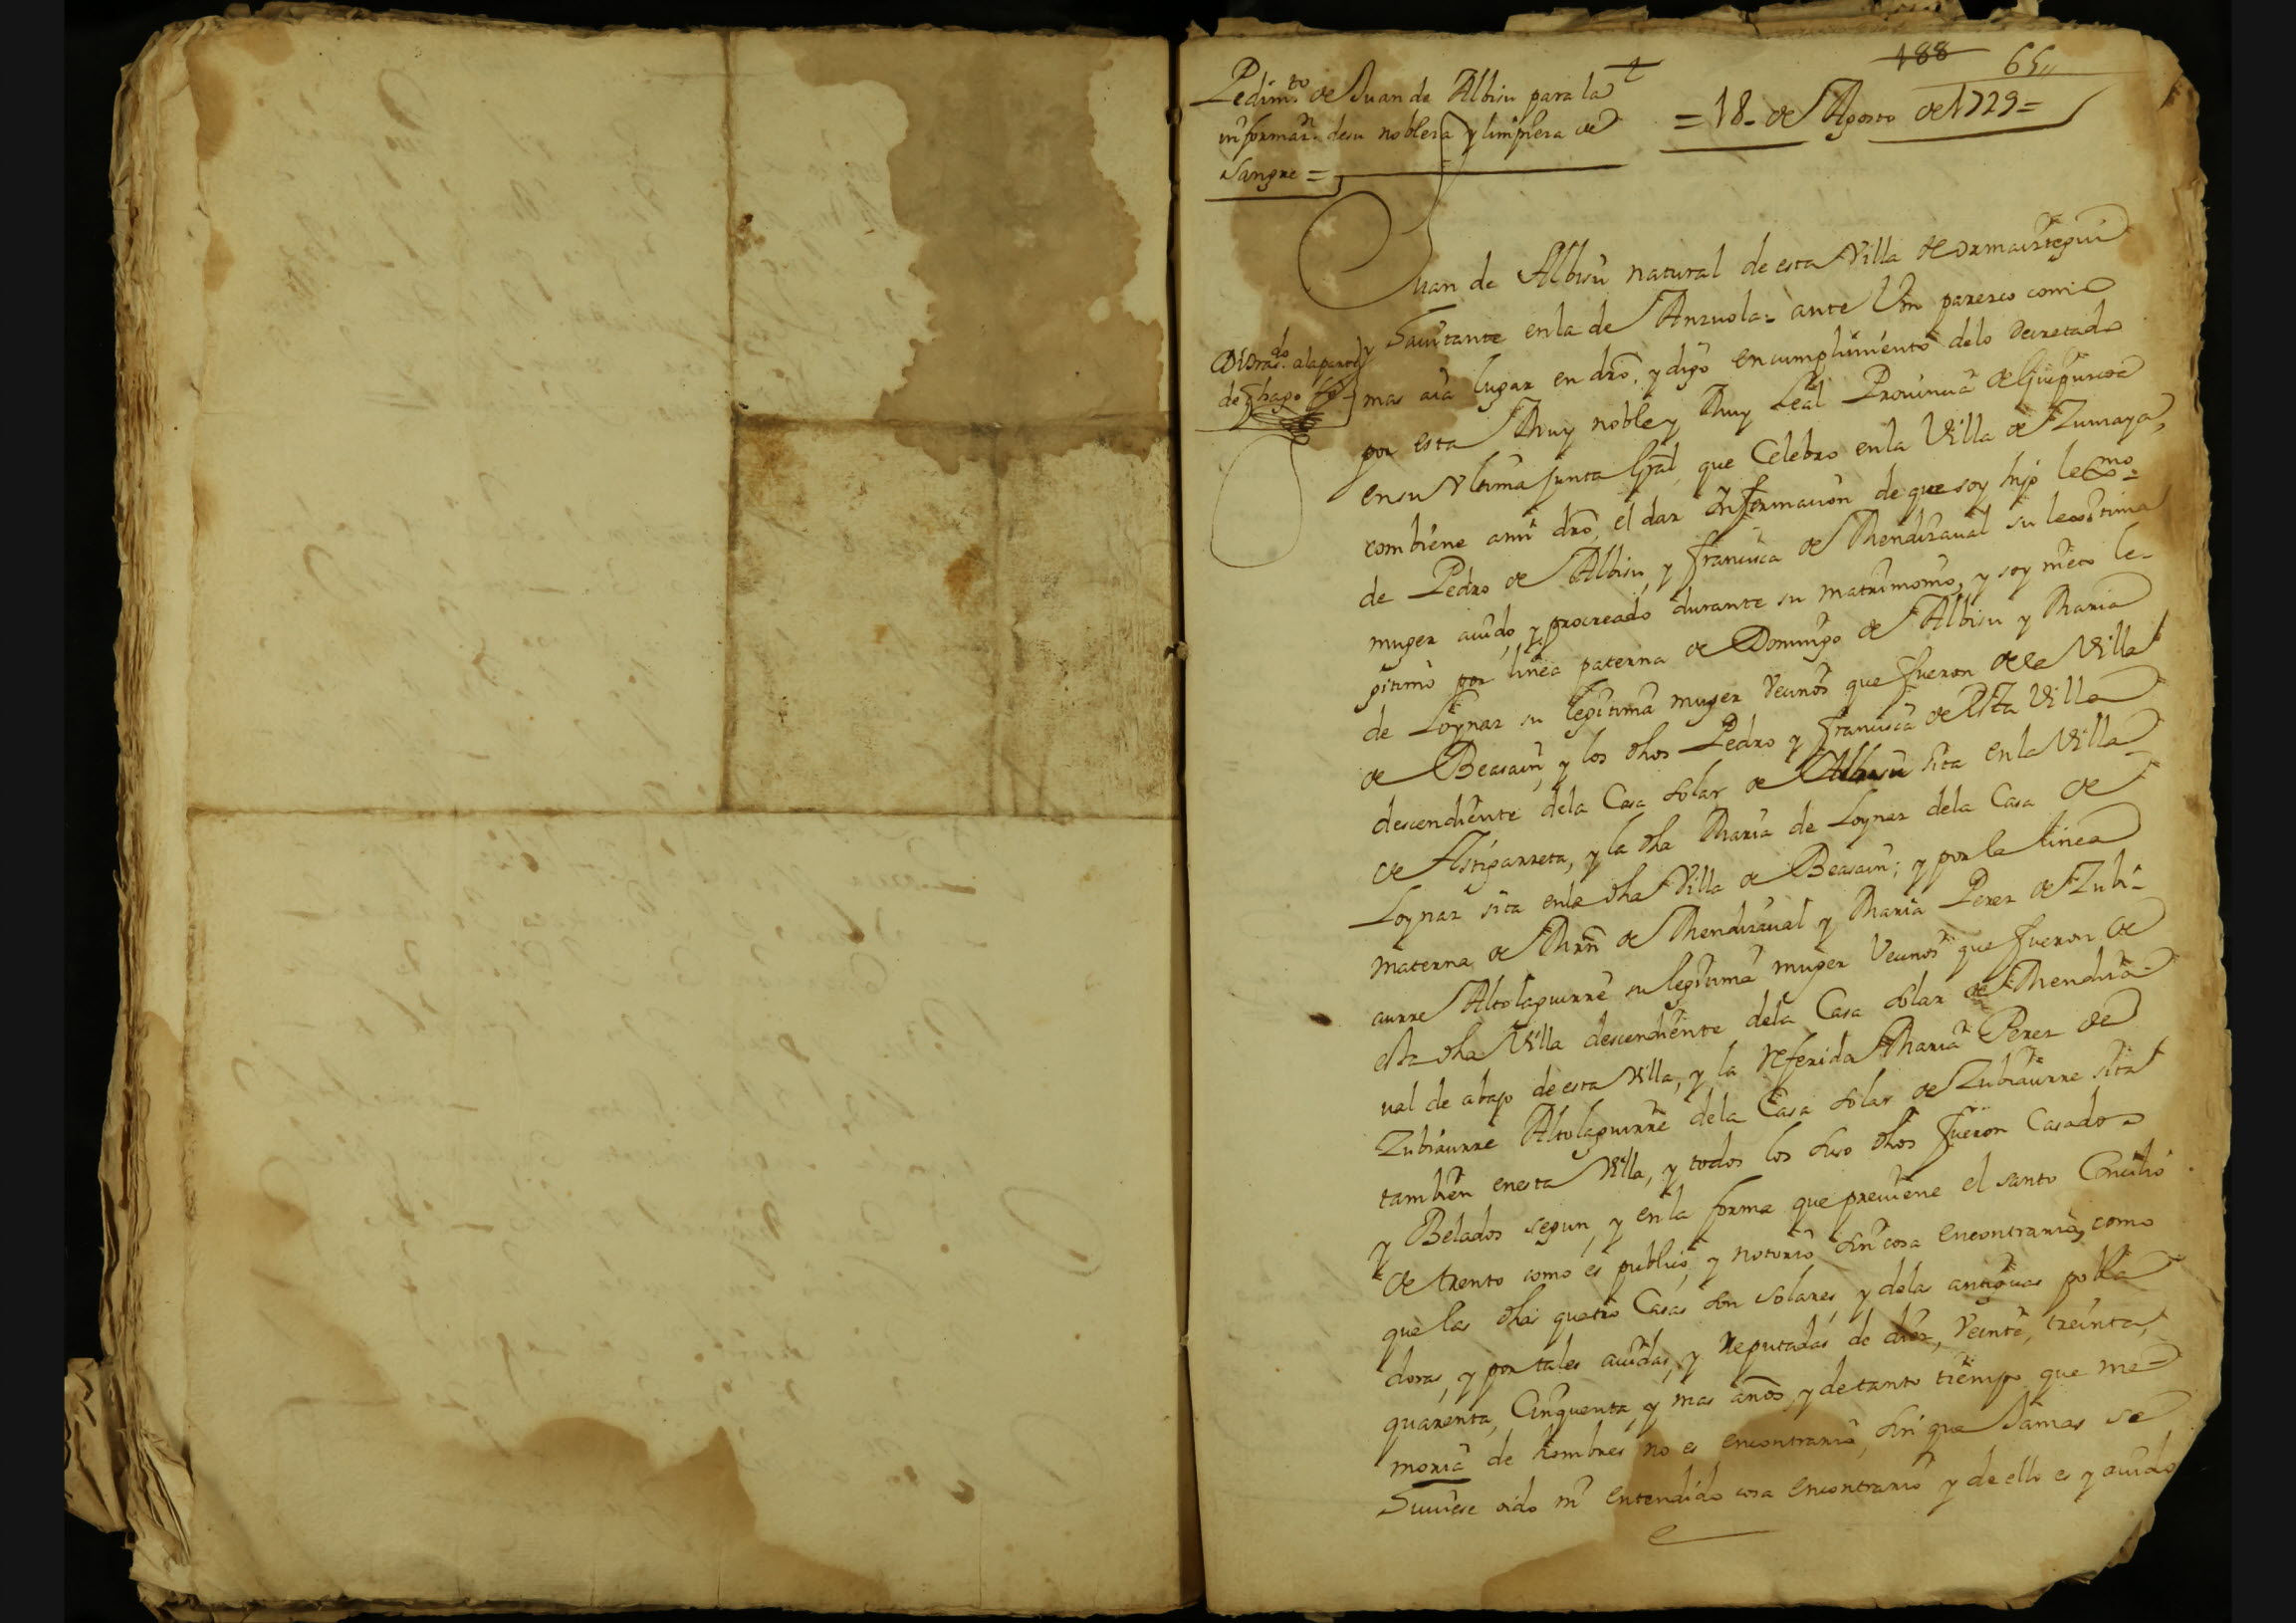 188 65
Pedimto. de Juan de Albisu para la
informan. de su noblesa y limpiesa de
Sangre =
= 18 - de Agosto de 1729 =
Juan de Albisu natural de esta Villa de ormaiztegui
y Sauitante en la de Anzuola = ante Vm paresco como
mas aia lugar en dro, y digo en cumplimiento delo decretado
por esta Muy noble y Muy Leal Prouincia de Guipuscoa
en su Vltima junta Gral, que Celebro en la Villa de Zumaya,
combiene ami dro, el dar Informacion de que soy hijo legmo.
de Pedro de Albisu, y francisca de Mendizaual su lexitima
muger auido, y procreado durante su matrimonio, y soy nieto le-
gitimo por linea paterna de Domingo de Albisu y Maria
de Loynaz su legitima muger Vecinos que fueron de la Villa
de Beasain, y los dhos Pedro y francisca de esta Villa
descendiente dela Casa solar de Albisu sita en la Villa
de Astigarreta, y la dha Maria de Loynaz dela Casa de
Loynaz sita en la dha Villa de Beasain; y por la linea
materna de Mrn de Mendizaual y Maria Perez de Zubi-
aurre Altolaguirre su legitima muger Vecinos que fueron de
esta dha Villa descendiente dela Casa solar de Mendiza-
ual de abajo de esta Villa, y la referida Maria Perez de
Zubiaurre Altolaguirre dela Casa solar de Zubiaurre sita
tambien en esta Villa, y todos los suso dhos fueron Casados
y Belados segun, y en la forma que preuiene el santo Concilio
de trento como es publico, y notorio sin cosa encontrario, como
que las dhas quatro Casas son solares, y delas antiguas pobla
doras, y por tales auidas, y Reputadas de diez, Veinte, treinta,
quarenta, Cinquenta, y mas años, y de tanto tiempo que me-
moria de hombres no es encontrario, sin que Jamas se
Suuiese oido ni entendido cosa encontrario y de ello es y auido
de q hago fe